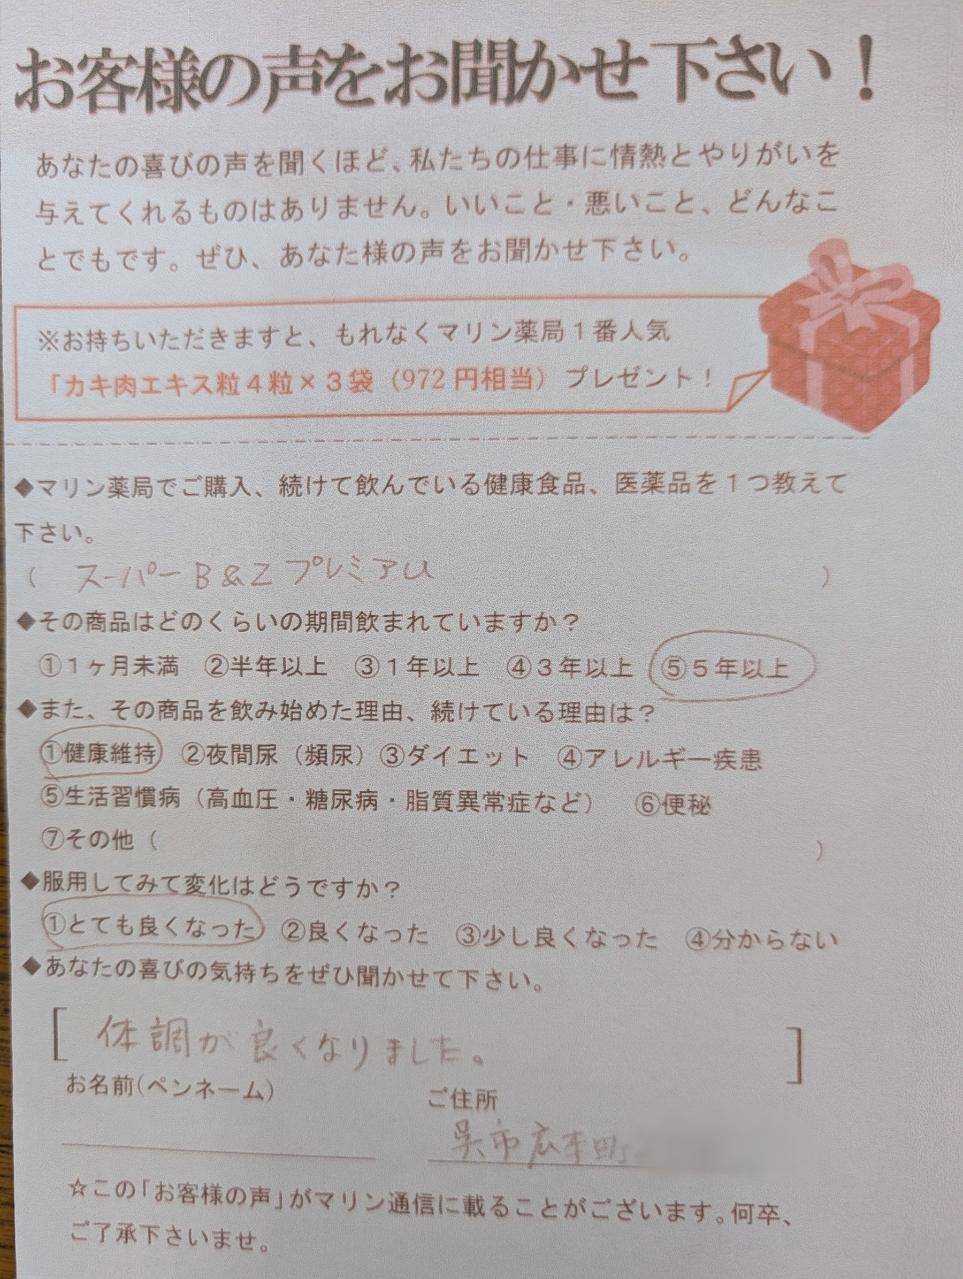 お客様の声をお聞かせ下さい！
あなたの喜びの声を聞くほど、私たちの仕事に情熱とやりがいを
与えてくれるものはありません。いいこと・悪いこと、どんなこ
とでもです。ぜひ、あなた様の声をお聞かせ下さい。
※お持ちいただきますと、もれなくマリン薬局１番人気
「カキ肉エキス粒４粒×３袋（972 円相当）プレゼント！
◆マリン薬局でご購入、続けて飲んでいる健康食品、医薬品を１つ教えて
下さい。
（ スーパーB&Zプレミアム ）
◆その商品はどのくらいの期間飲まれていますか？
①１ヶ月未満 ②半年以上 ③１年以上 ④３年以上 ⑤５年以上
◆また、その商品を飲み始めた理由、続けている理由は？
①健康維持 ②夜間尿（頻尿）③ダイエット ④アレルギー疾患
⑤生活習慣病（高血圧・糖尿病・脂質異常症など） ⑥便秘
⑦その他（ ）
◆服用してみて変化はどうですか？
①とても良くなった ②良くなった ③少し良くなった ④分からない
◆あなたの喜びの気持ちをぜひ聞かせて下さい。
[ 体調が良くなりました。 ]
お名前(ペンネーム) ご住所
呉市広本町
☆この「お客様の声」がマリン通信に載ることがございます。何卒、
ご了承下さいませ。